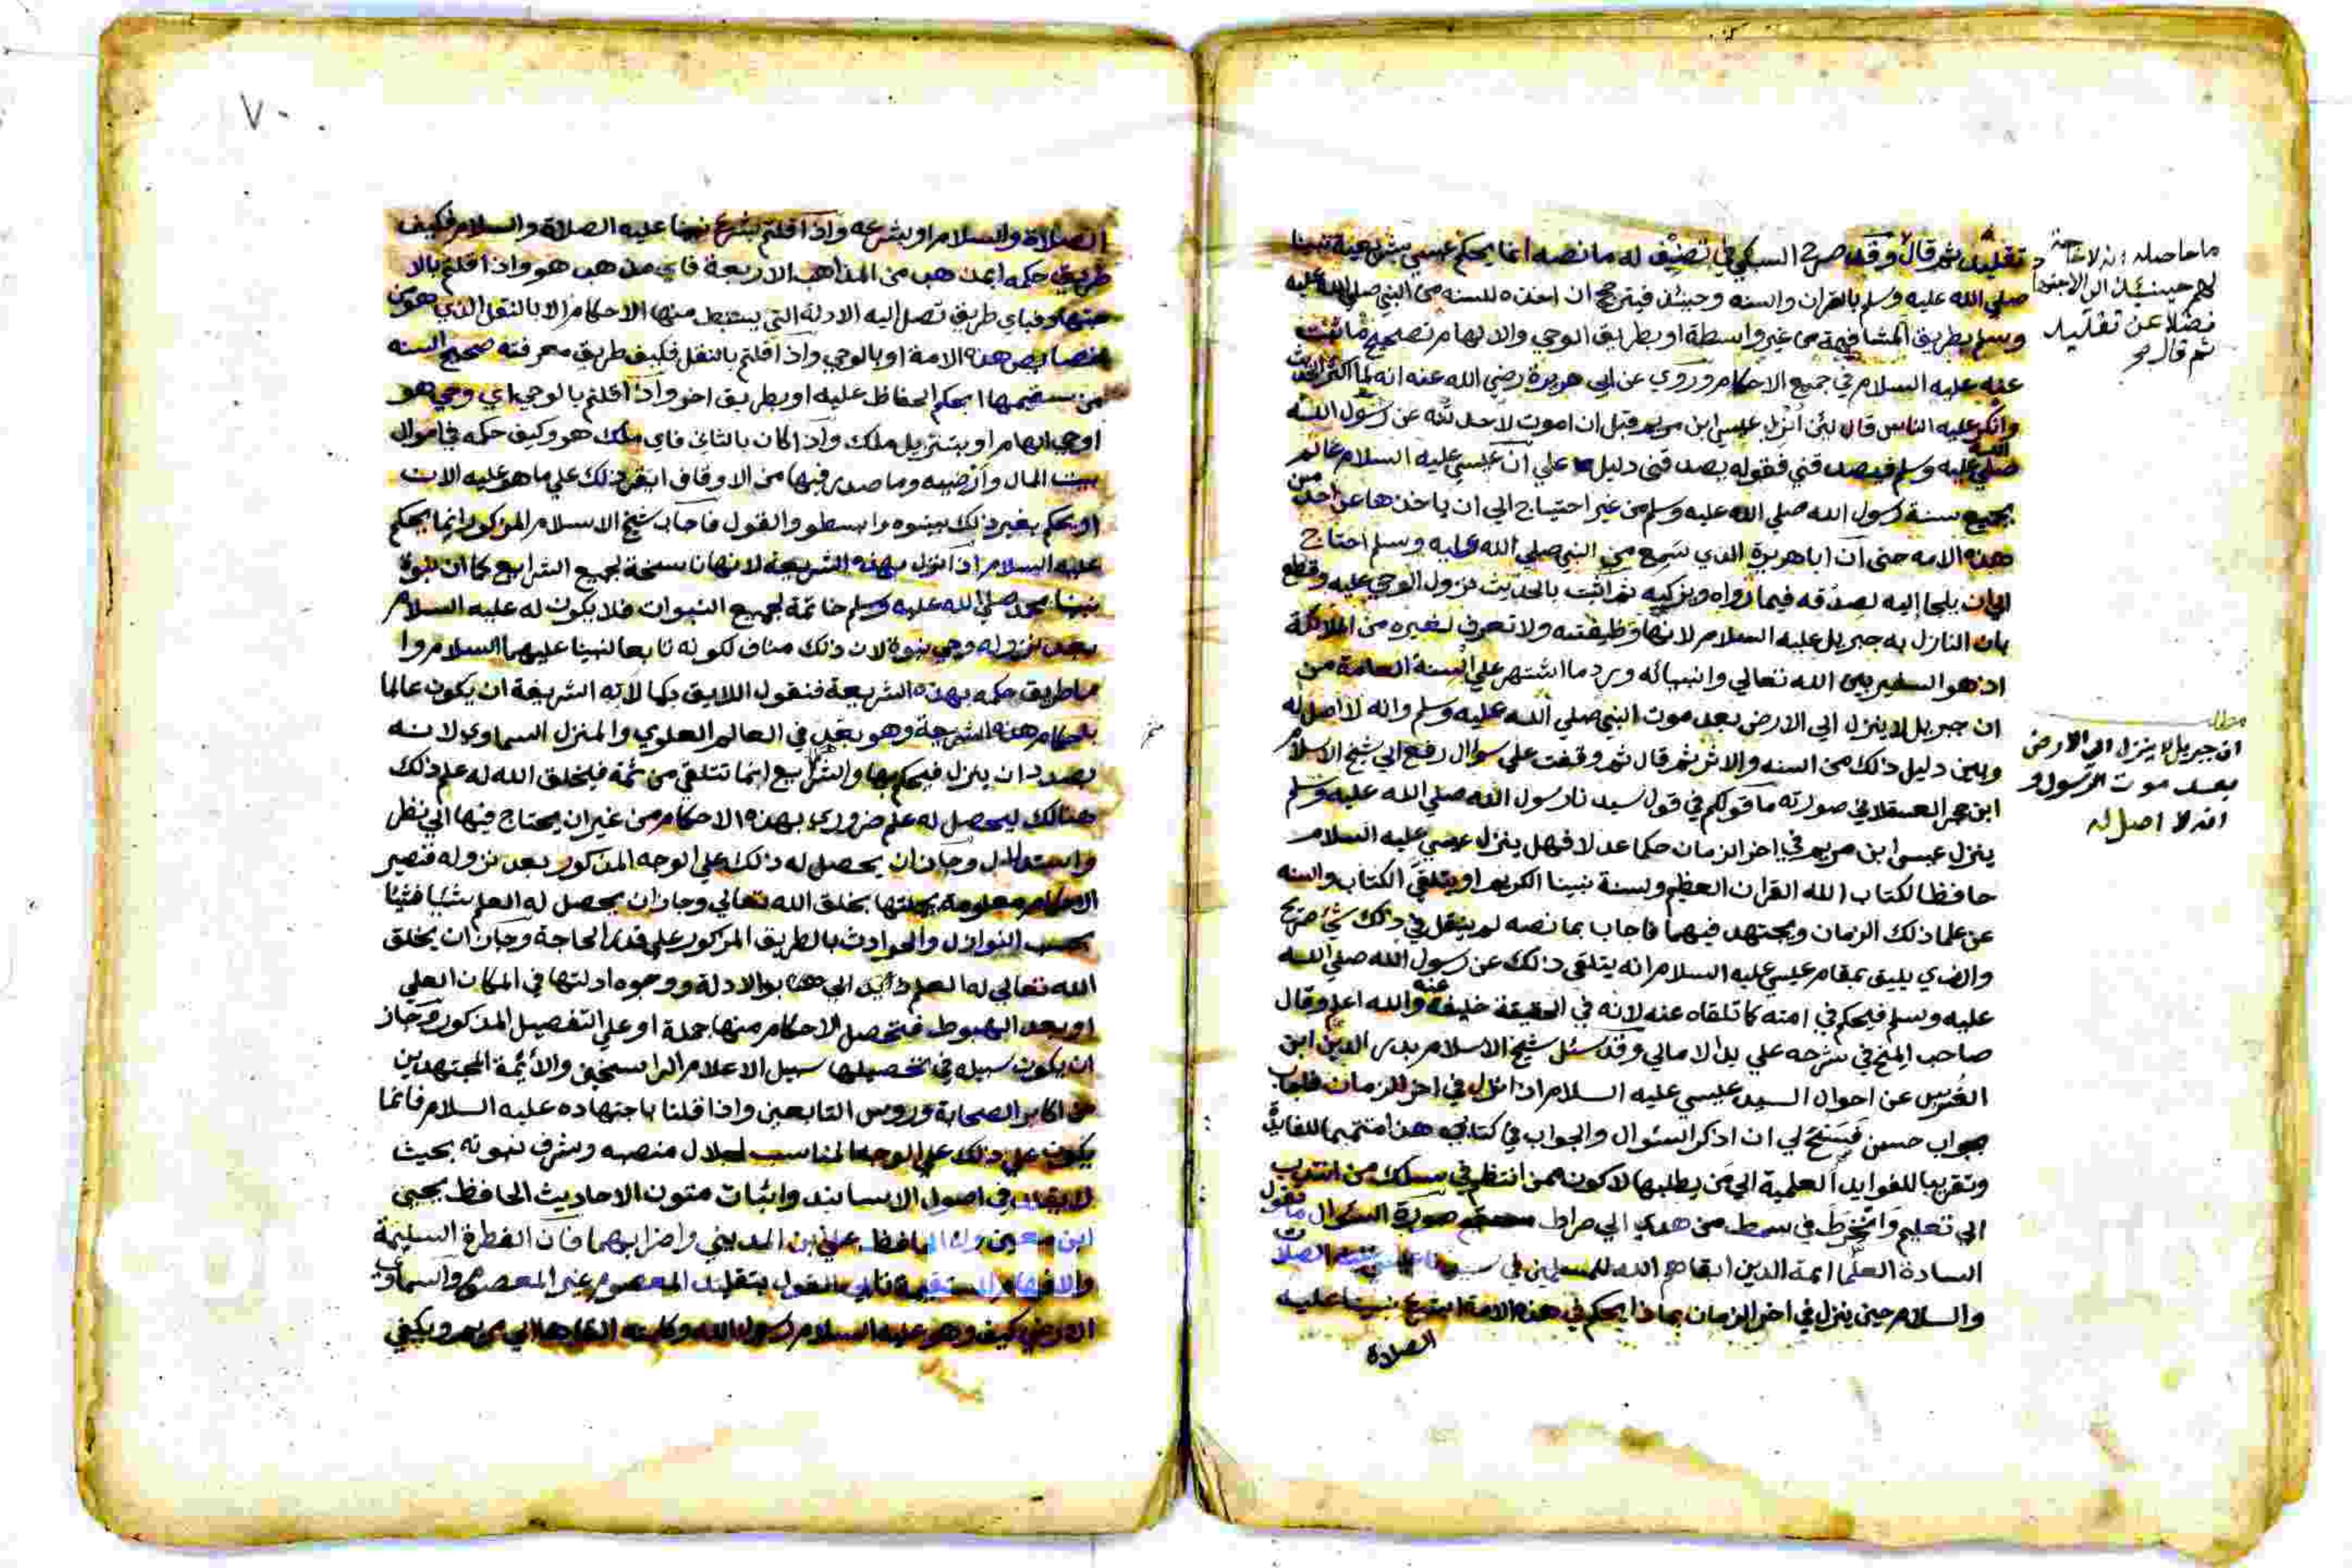 تقليد ثم قال وقد صرح السبكي في تصنيف له ما نصه انما يحكم عيسى بشريعة نبينا
صلي الله عليه وسلم بالقران والسنه وحينئذ فيترجح ان اخذه للسنه من النبي صلي الله عليه
وسلم بطريق المشافهة من غير واسطة او بطريق الوحي والالهام تصحيح ما ثبت
عنه عليه السلام في جميع الاحكام وروي عن ابي هريرة رضي الله عنه انه لما اكثر الحديث
وانكر عليه الناس قال لئن نزل عيسى ابن مريم قبل ان اموت لاحدثنه عن رسول الله
صلي الله عليه وسلم فيصدقني فقوله يصدقني دليل علي ان عيسي عليه السلام عالم
بجميع سنة رسول الله صلي الله عليه وسلم من غير احتياج الي ان ياخذها عن احد من
هذه الامه حتى ان اباهريرة الذي سمع من النبي صلي الله عليه وسلم احتاج
الي ان يلجا إليه يصدقه فيما رواه ويزكيه ثم اثبت بالحديث نزول الوحي عليه وقطع
بان النازل به جبريل عليه السلام لانها وظيفته ولا تعرف لغيره من الملائكة
اذ هو السفير بين الله تعالي وانبيائه ويرد ما اشتهر علي السنة العامة من
ان جبريل لا ينزل الي الارض بعد موت النبي صلي الله عليه وسلم وانه لا اصل له
وبين دليل ذلك من السنه والاثر ثم قال ثم وقفت على سوال رفع الي شيخ الاسلام
ابن حجر العسقلاني صورته ما قولكم في قول سيدنا رسول الله صلي الله عليه وسلم
ينزل عيسى ابن مريم في اخر الزمان حكما عدلا فهل ينزل عيسي عليه السلام
حافظا لكتاب الله القران العظيم ولسنة نبينا الكريم او يتلقي الكتاب والسنه
عن علما ذلك الزمان ويجتهد فيهما فاجاب بما نصه لم ينقل في ذلك شئ صريح
والذي يليق بمقام عيسي عليه السلام انه يتلقي ذلك عن رسول الله صلي الله
عليه وسلم فيحكم في امته كما تلقاه عنه لانه في الحقيقة خليفة عنه والله اعلم وقال
صاحب المنح في شرحه علي بدا الامالي وقد سئل شيخ الاسلام بدر الدين ابن
الغرس عن احوال السيد عيسي عليه السلام اذا نزل في اخر الزمان فاجاب
بجواب حسن فسنح لي ان اذكر السئوال والجواب في كتابي هذا تتميما للفايدة
وتقريبا للفوايد العلمية الي من يطلبها لاكون ممن انتظم في مسلك من انتدب
الي تعليم وانخرط في سمط من هدي الي صراط مستقيم صورة السئوال ما تقول
السادة العلما ائمة الدين ابقاهم الله للمسلمين في سيدنا عيسي عليه الصلاة
والسلام حين ينزل في اخر الزمان بماذا يحكم في هذه الامة ابشرع نبينا عليه
الصلاة
ما حاصله انه لا حاجة
لهم حينئذ الي الاجتهاد
فضلا عن تقليد
ثم قال
مطلب
ان جبريل لا ينزل الي الارض
بعد موت الرسول و
انه لا اصل له
٧٠
الصلاة والسلام او بشرعه واذا قلتم بشرع نبينا عليه الصلاة والسلام فكيف
طريق حكمه ابمذهب من المذاهب الاربعة فاي مذهب هو واذا قلتم بالا
جتهاد فباي طريق تصل اليه الادلة التي يستنبط منها الاحكام الا بالنقل الذي هو من
خصايص هذه الامة او بالوحي واذا قلتم بالنقل فكيف طريق معرفته صحيح السنه
من سقيمها ابحكم الحفاظ عليه او بطريق اخر واذا قلتم بالوحي اي وحي هو
اوحي الهام او بتنزيل ملك واذا كان بالثاني فاي ملك هو وكيف حكمه في اموال
بيت المال وارضيه وما صدر فيها من الاوقاف ايقر ذلك علي ما هو عليه الان
او يحكم بغير ذلك بينوه وابسطو والقول فاجاب شيخ الاسلام المذكور انما يحكم
عليه السلام اذا نزل بهذه الشريعة لانها ناسخة لجميع الشرايع كما ان نبوة
نبينا محمد صلي الله عليه وسلم خاتمة لجميع النبوات فلا يكون له عليه السلام
بعد نزوله وحي نبوة لان ذلك مناف لكونه تابعا لنبينا عليهما السلام وا
ما طريق حكمه بهذه الشريعة فنقول اللايق بكمالاته الشريفة ان يكون عالما
باحكام هذه الشريعة وهو بعد في العالم العلوي والمنزل السماوي لانه
بصدد ان ينزل فيحكم بها والشرايع انما تتلقي من ثمة فيخلق الله له علم ذلك
هنالك ليحصل له علم ضروري بهذه الاحكام من غير ان يحتاج فيها الي نظر
واستدلال وجاز ان يحصل له ذلك علي الوجه المذكور بعد نزوله فتصير
الاحكام معلومة بجملتها بخلق الله تعالي وجاز ان يحصل له العلم شيئا فشيئا
بحسب النوازل والحوادث بالطريق المذكور علي قدر الحاجة وجاز ان يخلق
الله تعالي له العلم بالادلة ووجوه ادلتها في المكان العلي
او بعد الهبوط فتحصل الاحكام منها جملة او علي التفصيل المذكور وجاز
ان يكون سبيله في تحصيلها سبيل الاعلام الراسخين والأئمة المجتهدين
من اكابر الصحابة وروس التابعين واذا قلنا باجتهاده عليه السلام فانما
يكون علي ذلك علي الوجه المناسب لجلال منصبه وشرف نبوته بحيث
لا يقلد في اصول الاسانيد واثبات متون الاحاديث الحافظ يحيى
ابن معين ولا الحافظ علي بن المديني واضرابهما فان الفطرة السليمة
والافهام المستقيمة تابي القول بتقليد المعصوم غير المعصوم والسماوي
الارضي كيف وهو عليه السلام رسول الله وكلمته القاها الي مريم ويكفي